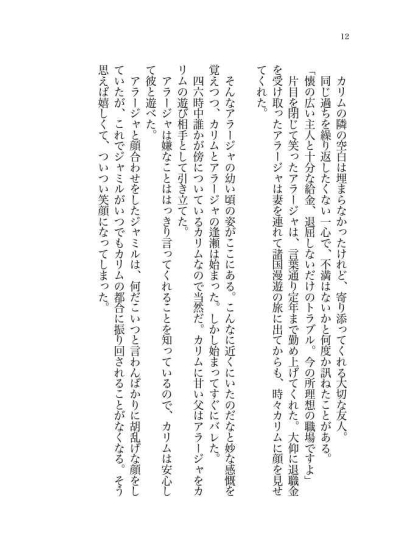 12
カリムの隣の空白は埋まらなかったけれど、寄り添ってくれる大切な友人。
同じ過ちを繰り返したくない一心で、不満はないかと何度か訊ねたことがある。
「懐の広い主人と十分な給金、退屈しないだけのトラブル。今の所理想の職場ですよ」
片目を閉じて笑ったアラージャは、言葉通り定年まで勤め上げてくれた。大仰に退職金
を受け取ったアラージャは妻を連れて諸国漫遊の旅に出てからも、時々カリムに顔を見せ
てくれた。
そんなアラージャの幼い頃の姿がここにある。こんなに近くにいたのだなと妙な感慨を
覚えつつ、カリムとアラージャの逢瀬は始まった。しかし始まってすぐにバレた。
四六時中誰かが傍についているカリムなので当然だ。カリムに甘い父はアラージャをカ
リムの遊び相手として引き立てた。
アラージャは嫌なことははっきり言ってくれることを知っているので、カリムは安心し
て彼と遊べた。
アラージャと顔合わせをしたジャミルは、何だこいつと言わんばかりに胡乱げな顔をし
ていたが、これでジャミルがいつでもカリムの都合に振り回されることがなくなる。そう
思えば嬉しくて、ついつい笑顔になってしまった。